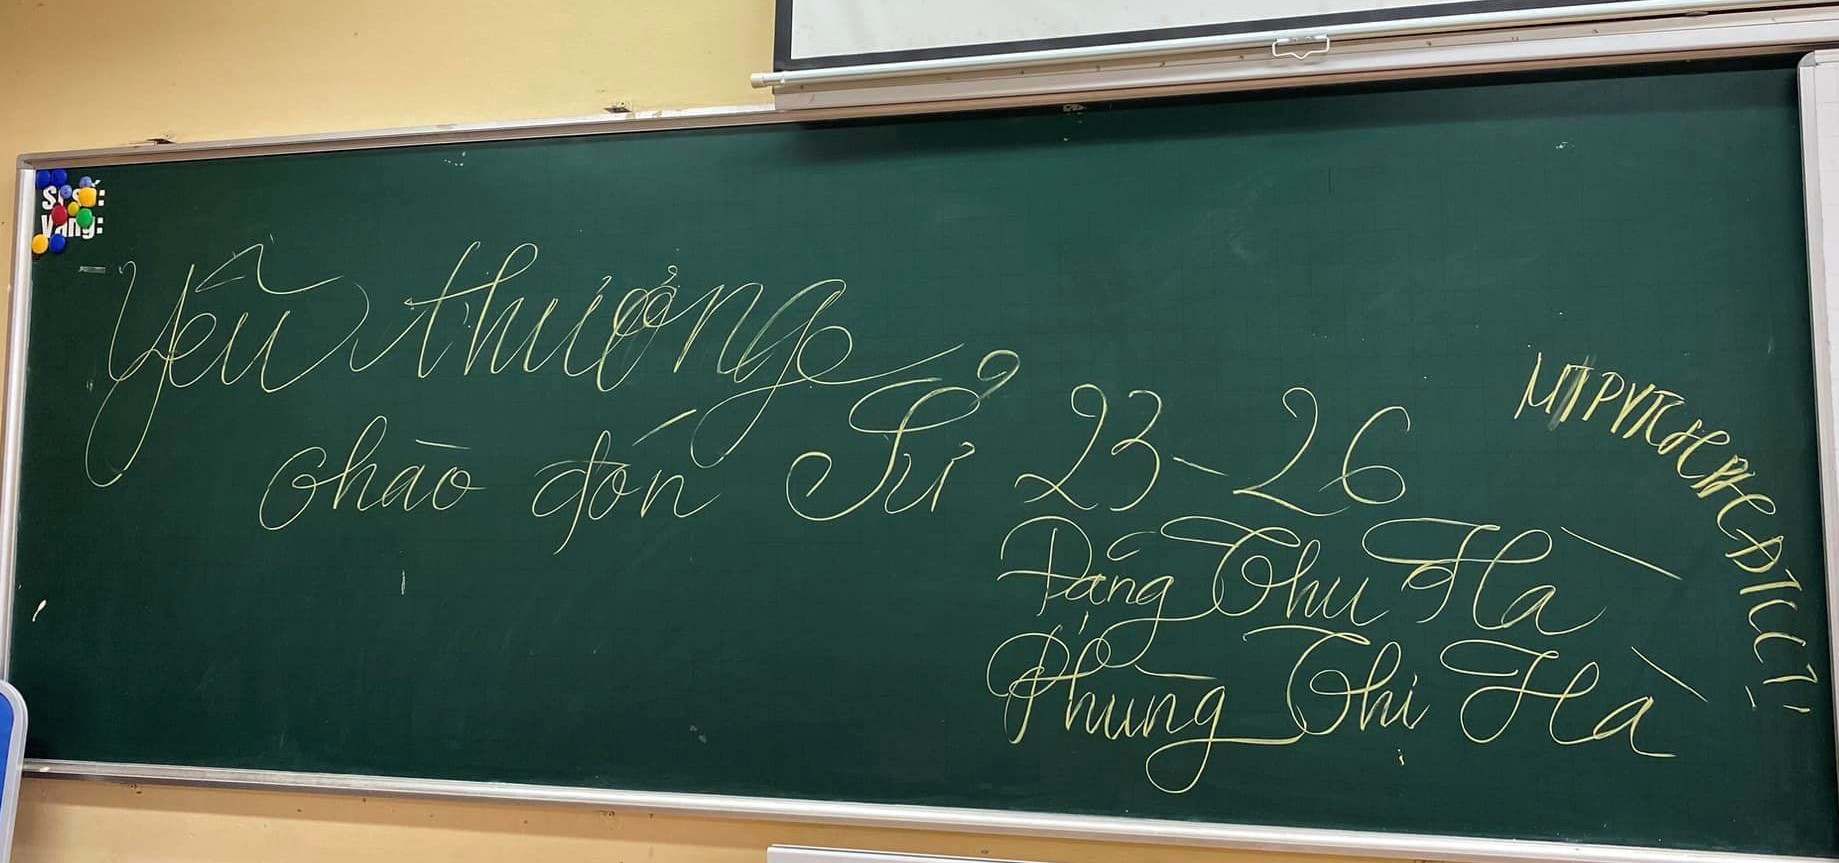 Sĩ số:
Vắng:
Yêu thương
chào đón Sử 23-26
Đặng Thu Hà
Phùng Thị Hà